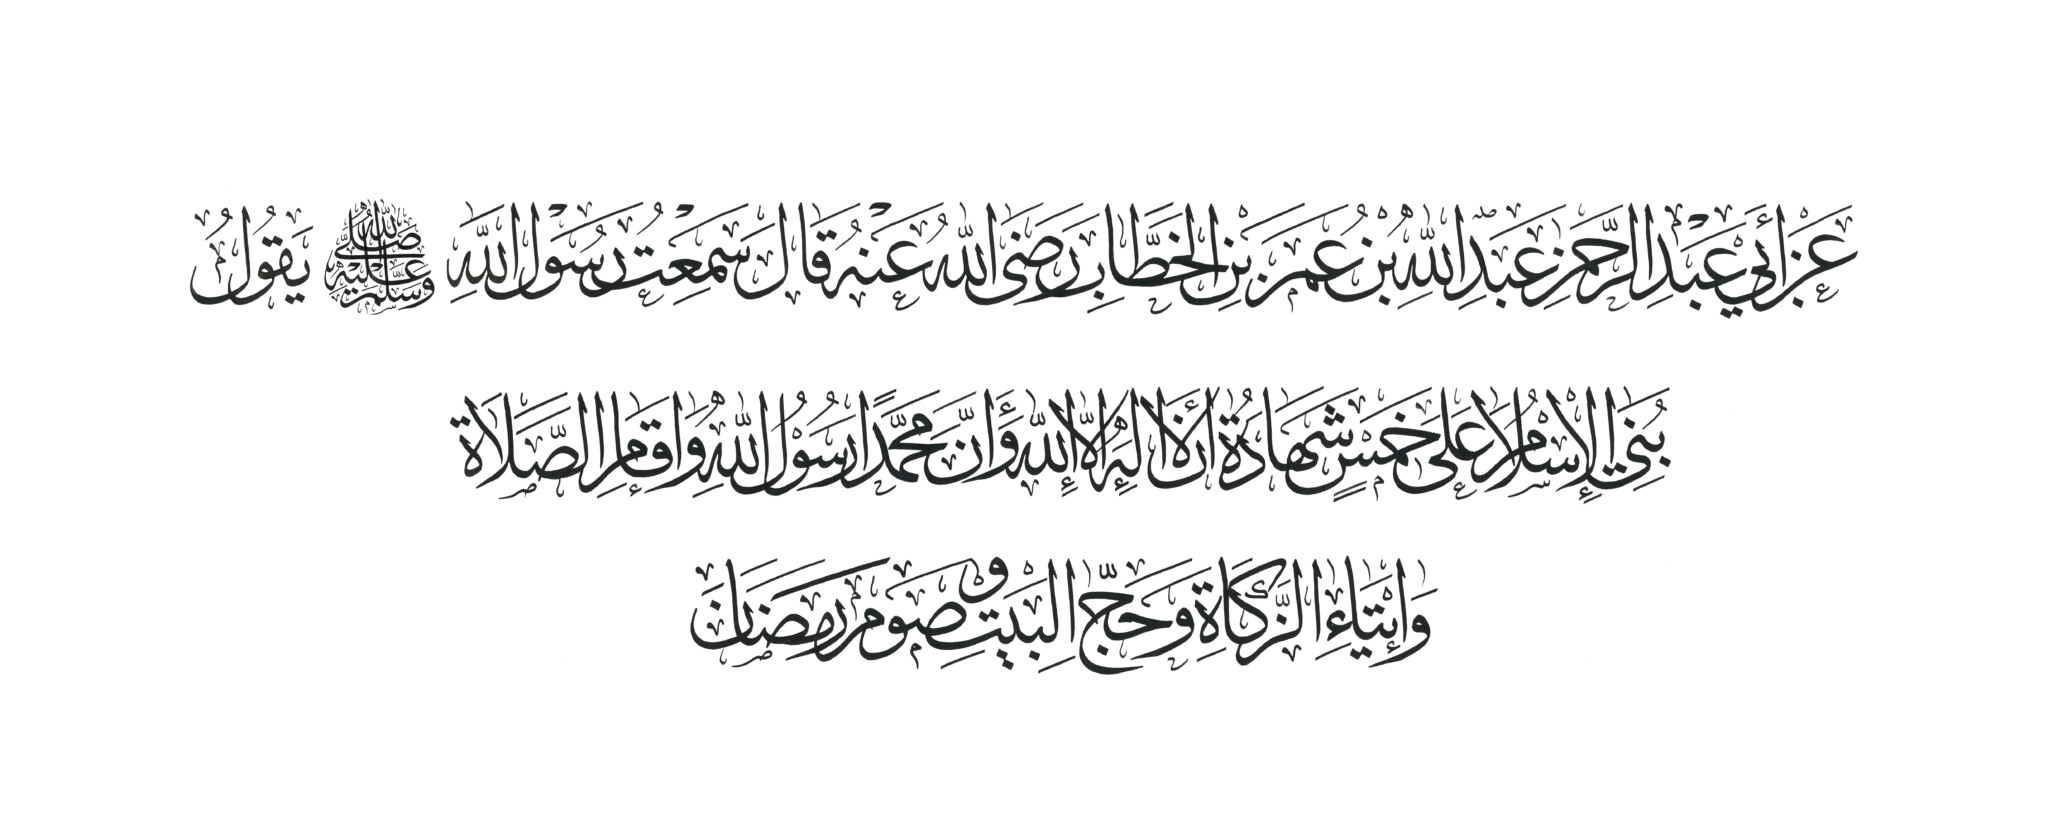 عَنْ أَبِي عَبْدِ الرَّحْمَنِ عَبْدِ اللهِ بْنِ عُمَرَ بْنِ الْخَطَّابِ رَضِيَ اللهُ عَنْهُ قَالَ سَمِعْتُ رَسُوْلَ اللهِ صَلَّى اللهُ عَلَيْهِ وَسَلَّمَ يَقُولُ
بُنِيَ الْإِسْلَامُ عَلَى خَمْسٍ شَهَادَةُ أَنْ لَا إِلَهَ إِلَّا اللهُ وَأَنَّ مُحَمَّدًا رَسُوْلُ اللهِ وَإِقَامِ الصَّلَاةِ
وَإِيْتَاءِ الزَّكَاةِ وَحَجِّ الْبَيْتِ وَصَوْمِ رَمَضَانَ